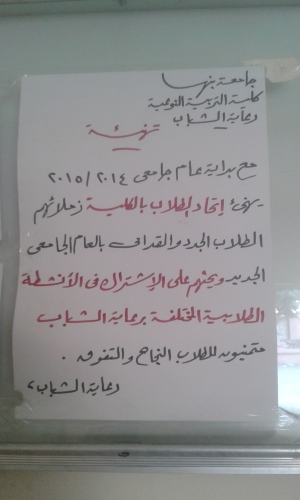 جامعة بنها
كلية التربية النوعية
رعاية الشباب
تهنئة
مع بداية عام جامعى ٢٠١٤ / ٢٠١٥
يهنئ إتحاد الطلاب بالكلية زملائهم
الطلاب الجدد والقدامى بالعام الجامعى
الجديد ويحثهم على الإشتراك فى الأنشطة
الطلابية المختلفة برعاية الشباب
متمنيين للطلاب النجاح والتفوق .
رعاية الشباب ،